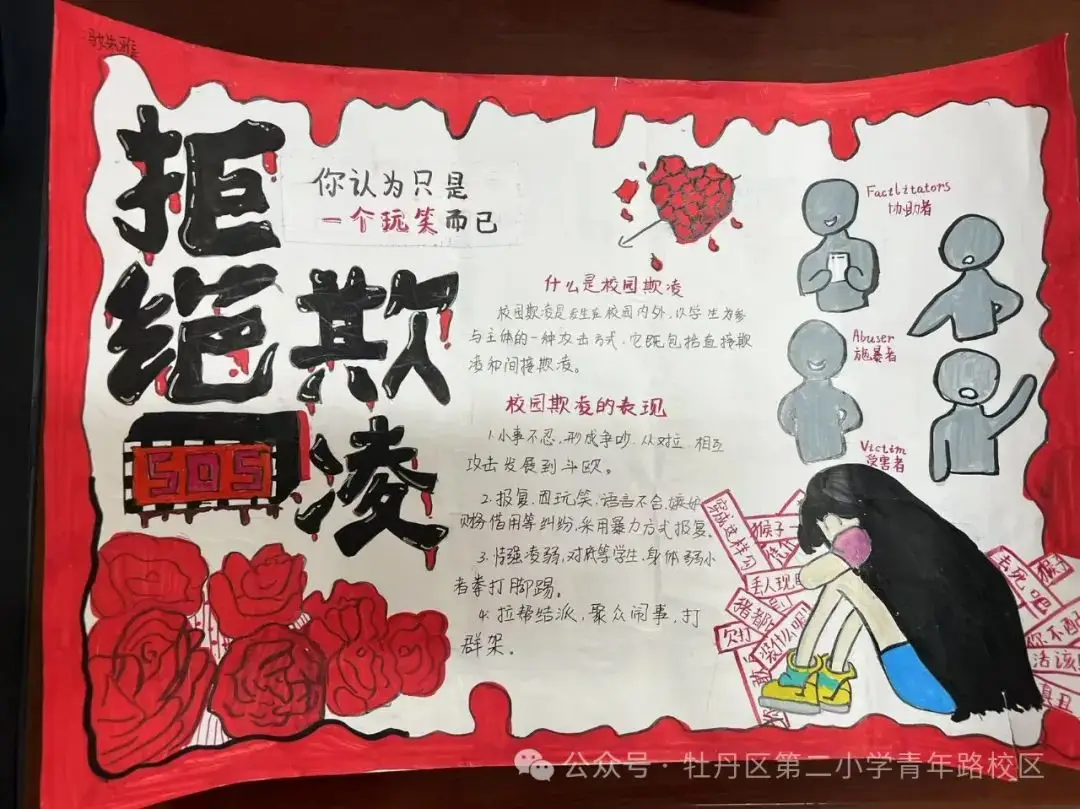 拒绝欺凌
SOS
你认为只是
一个玩笑而已
什么是校园欺凌
校园欺凌是发生在校园内外,以学生为参
与主体的一种攻击方式,它既包括直接欺
凌和间接欺凌。
校园欺凌的表现
1.小事不忍,形成争吵,从对立,相互
攻击发展到斗殴。
2.报复,因玩笑,语言不合,嫉妒
财务借用等纠纷,采用暴力方式报复。
3.恃强凌弱,对低等学生,身体弱小
者拳打脚踢。
4.拉帮结派,聚众闹事,打
群架。
Facilitators
协助者
Abuser
施暴者
Victim
受害者
猴子
丢人现
猪都
欠打
装什么呢
去死吧
猴子
你不配
活该
公众号·牡丹区第二小学青年路校区